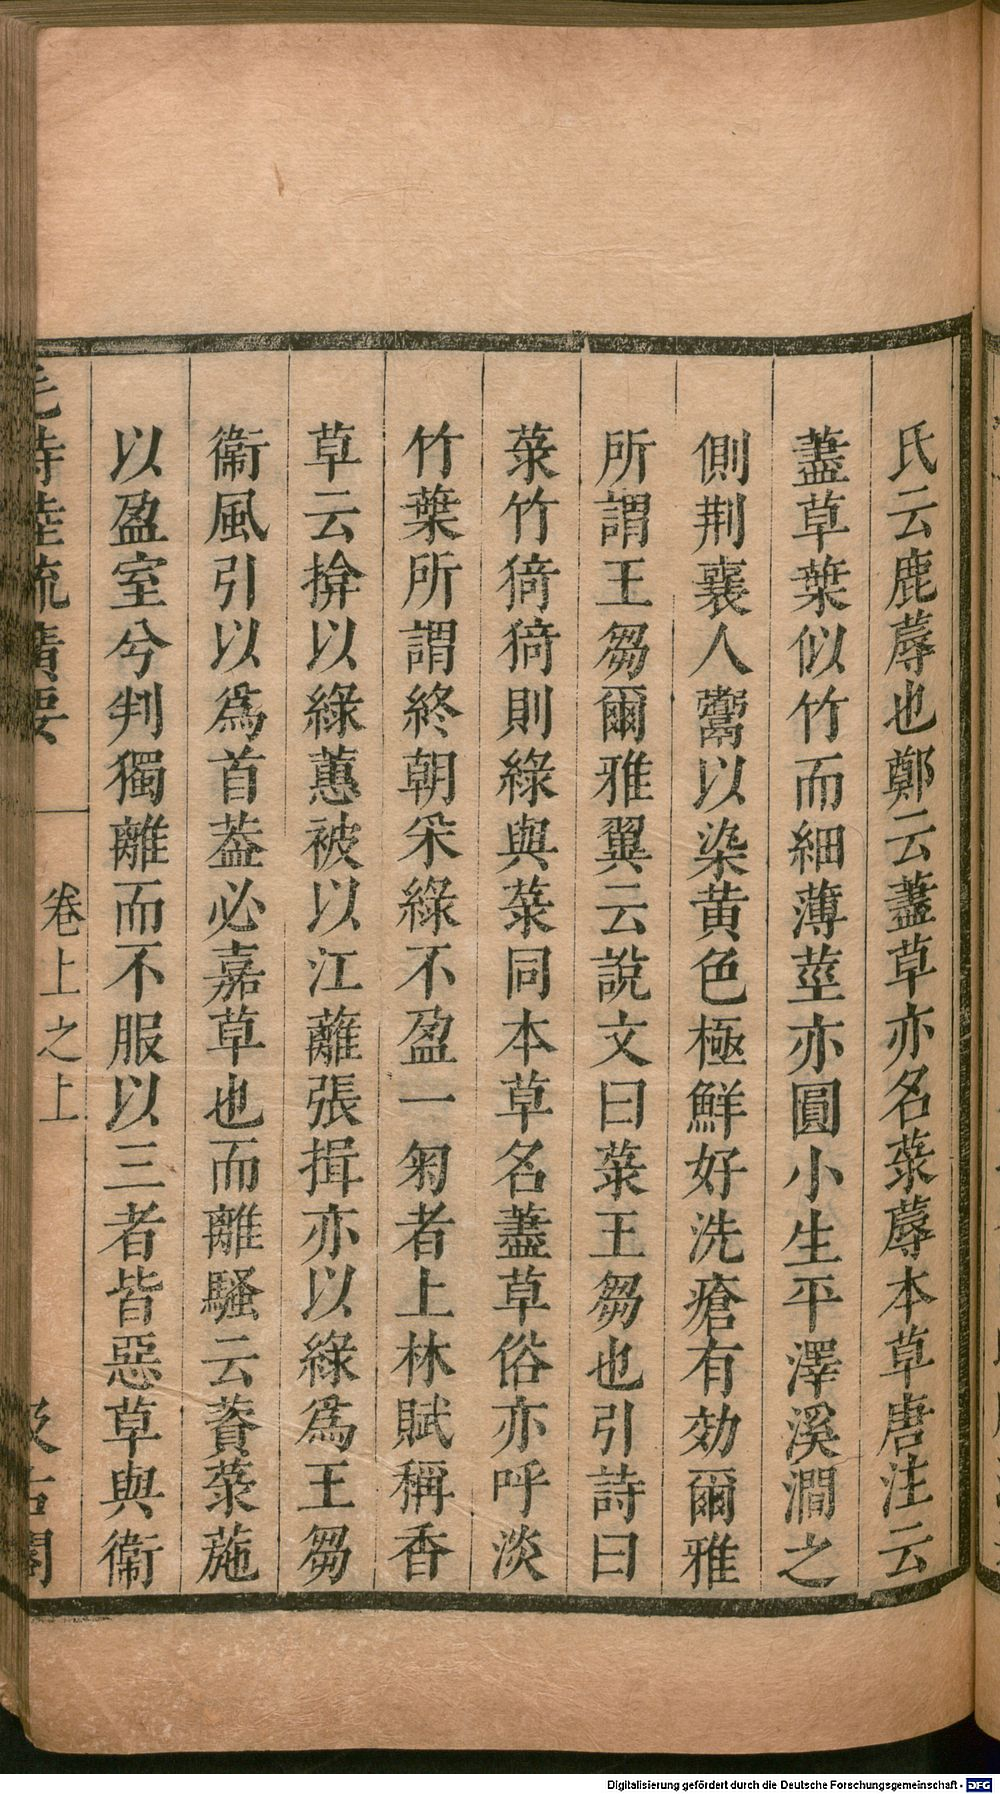 氏云鹿蓐也鄭云藎草亦名菉蓐本草唐注云
藎草葉似竹而細薄莖亦圓小生平澤溪澗之
側荆襄人鬻以染黄色極鮮好洗瘡有効爾雅
所謂王芻爾雅翼云說文曰菉王芻也引詩曰
菉竹猗猗則綠與菉同本草名藎草俗亦呼淡
竹葉所謂終朝采綠不盈一匊者上林賦稱香
草云揜以綠蕙被以江蘺張揖亦以綠爲王芻
衞風引以爲首葢必嘉草也而離騷云薋菉葹
以盈室兮判獨離而不服以三者皆惡草與衞
毛詩陸疏廣要 卷上之上 汲古閣
Digitalisierung gefördert durch die Deutsche Forschungsgemeinschaft - DFG